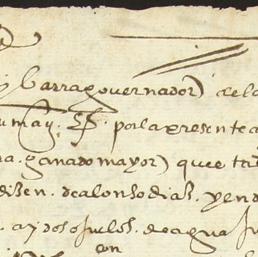 y barra governador de la
su mag. por la presente a
ganado mayor que
dizen de alonso dias yen
ay dos ojuelos de agua
con